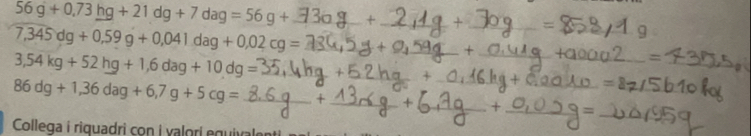 56 g + 0,73 hg + 21 dg + 7 dag = 56 g + 730g + 2,1g + 70g = 858,1 g
7,345 dg + 0,59 g + 0,041 dag + 0,02 cg = 734,5g + 0,59g + 0,41g + 0,0002 = 735,5
3,54 kg + 52 hg + 1,6 dag + 10 dg = 35,4hg + 52hg + 0,16hg + = 87,5610 hg
86 dg + 1,36 dag + 6,7 g + 5 cg = 8.6g + 13,6g + 6,7g + 0,05g =
Collega i riquadri con i valori equivalenti